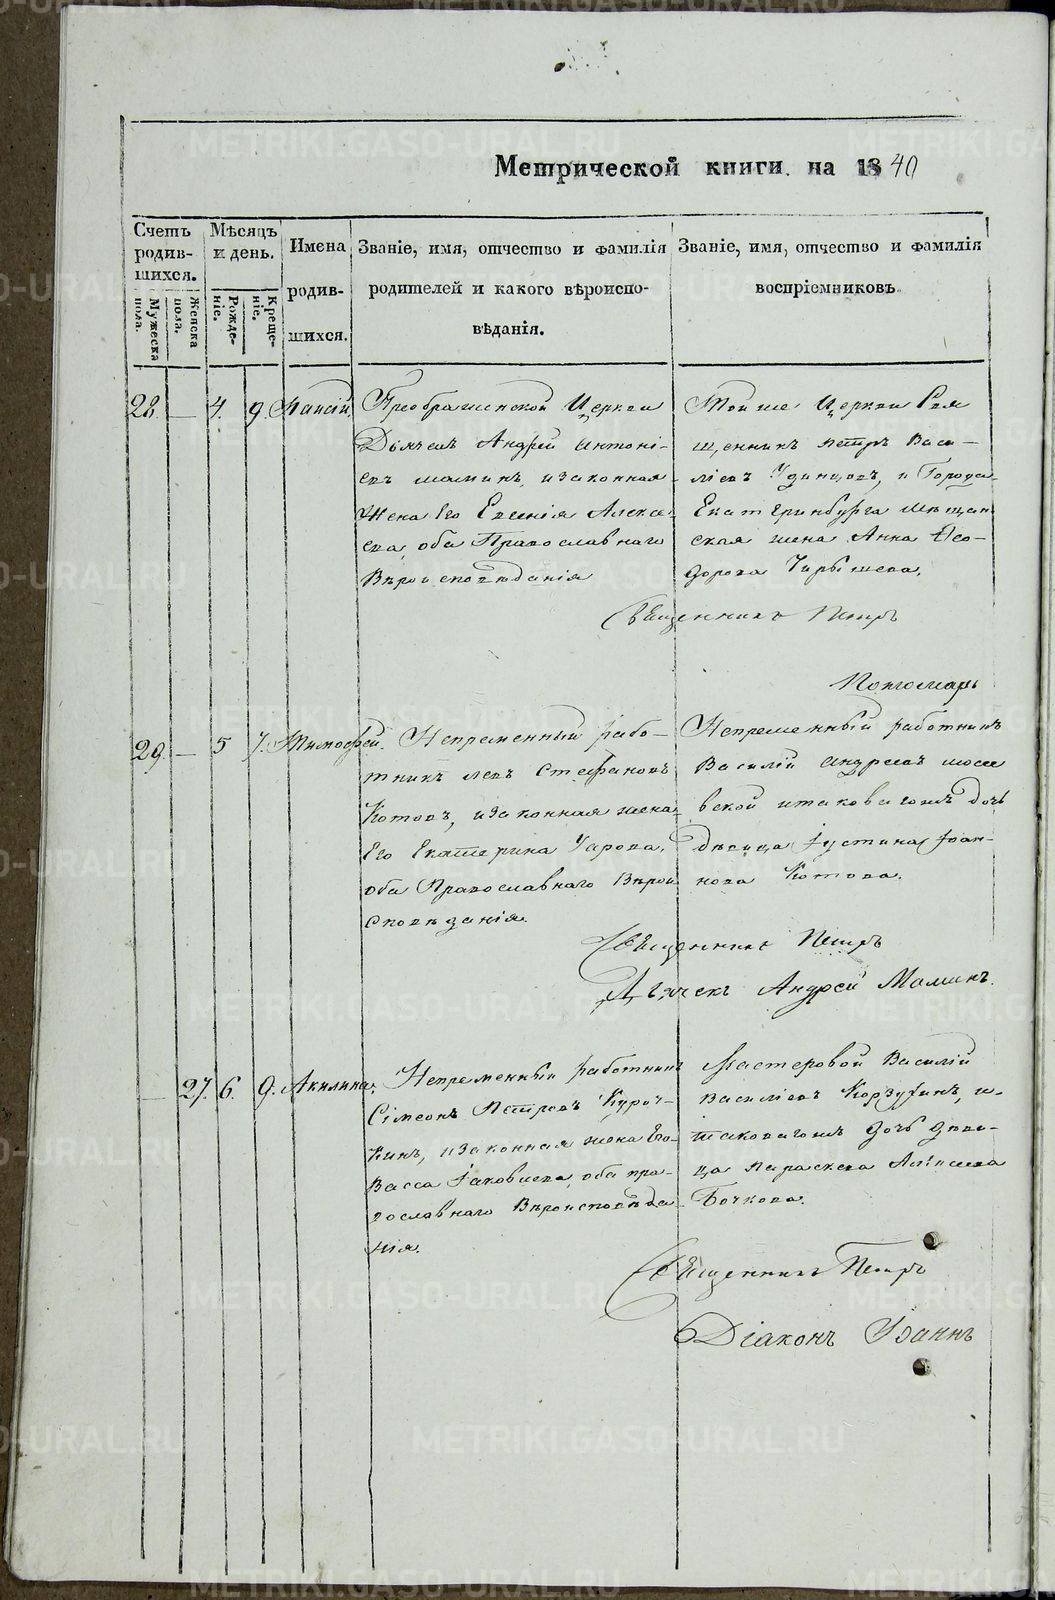 Метрической книги на 1840
Счетъ родившихся.
Мужеска пола.
Женска пола.
Мѣсяцъ и день.
Рожденіе.
Крещеніе.
Имена родившихся.
Званіе, имя, отчество и фамилія родителей и какого вѣроисповѣданія.
Званіе, имя, отчество и фамилія воспріемниковъ
28. — 4. 9. Паисій
Преображенской Церкви
Дьячекъ Андрей Антоні-
евъ Маминъ, и законная
Жена Его Евгенія Алексѣ-
ева, оба Православнаго
Вѣроисповѣданія
Той же Церкви Свя
щенникъ Петръ Васи-
ліевъ Удинцовъ, и Города
Екатеринбурга мѣщан
ская жена Анна Ѳео-
дорова
Священникъ Петръ
Пономарь
29. — 5 7. Тимоѳей.
Непременный рабо-
тникъ Левъ Стефановъ
Котовъ, и законная жена
Его Екатерина Уарова,
оба Православнаго Вѣрои
споведанія.
Непременный работникъ
Василій Андреевъ
дочь
девица Іустина Іоан-
нова Котова.
Священникъ Петръ
Дьячекъ Андрей Маминъ.
— 27. 6. 9. Акилина.
Непременный работникъ
Сімеонъ Петровъ Куроч-
кинъ, и законная жена Его
Васса Іаковлева, оба пра-
вославнаго Вѣроисповѣда
нія.
Мастеровой Василій
Василіевъ Корзухинъ, и
таковагожъ дочь деви-
ца Параскева
Бочкова.
Священникъ Петръ
Діаконъ Іоаннъ
METRIKI.GASO-URAL.RU